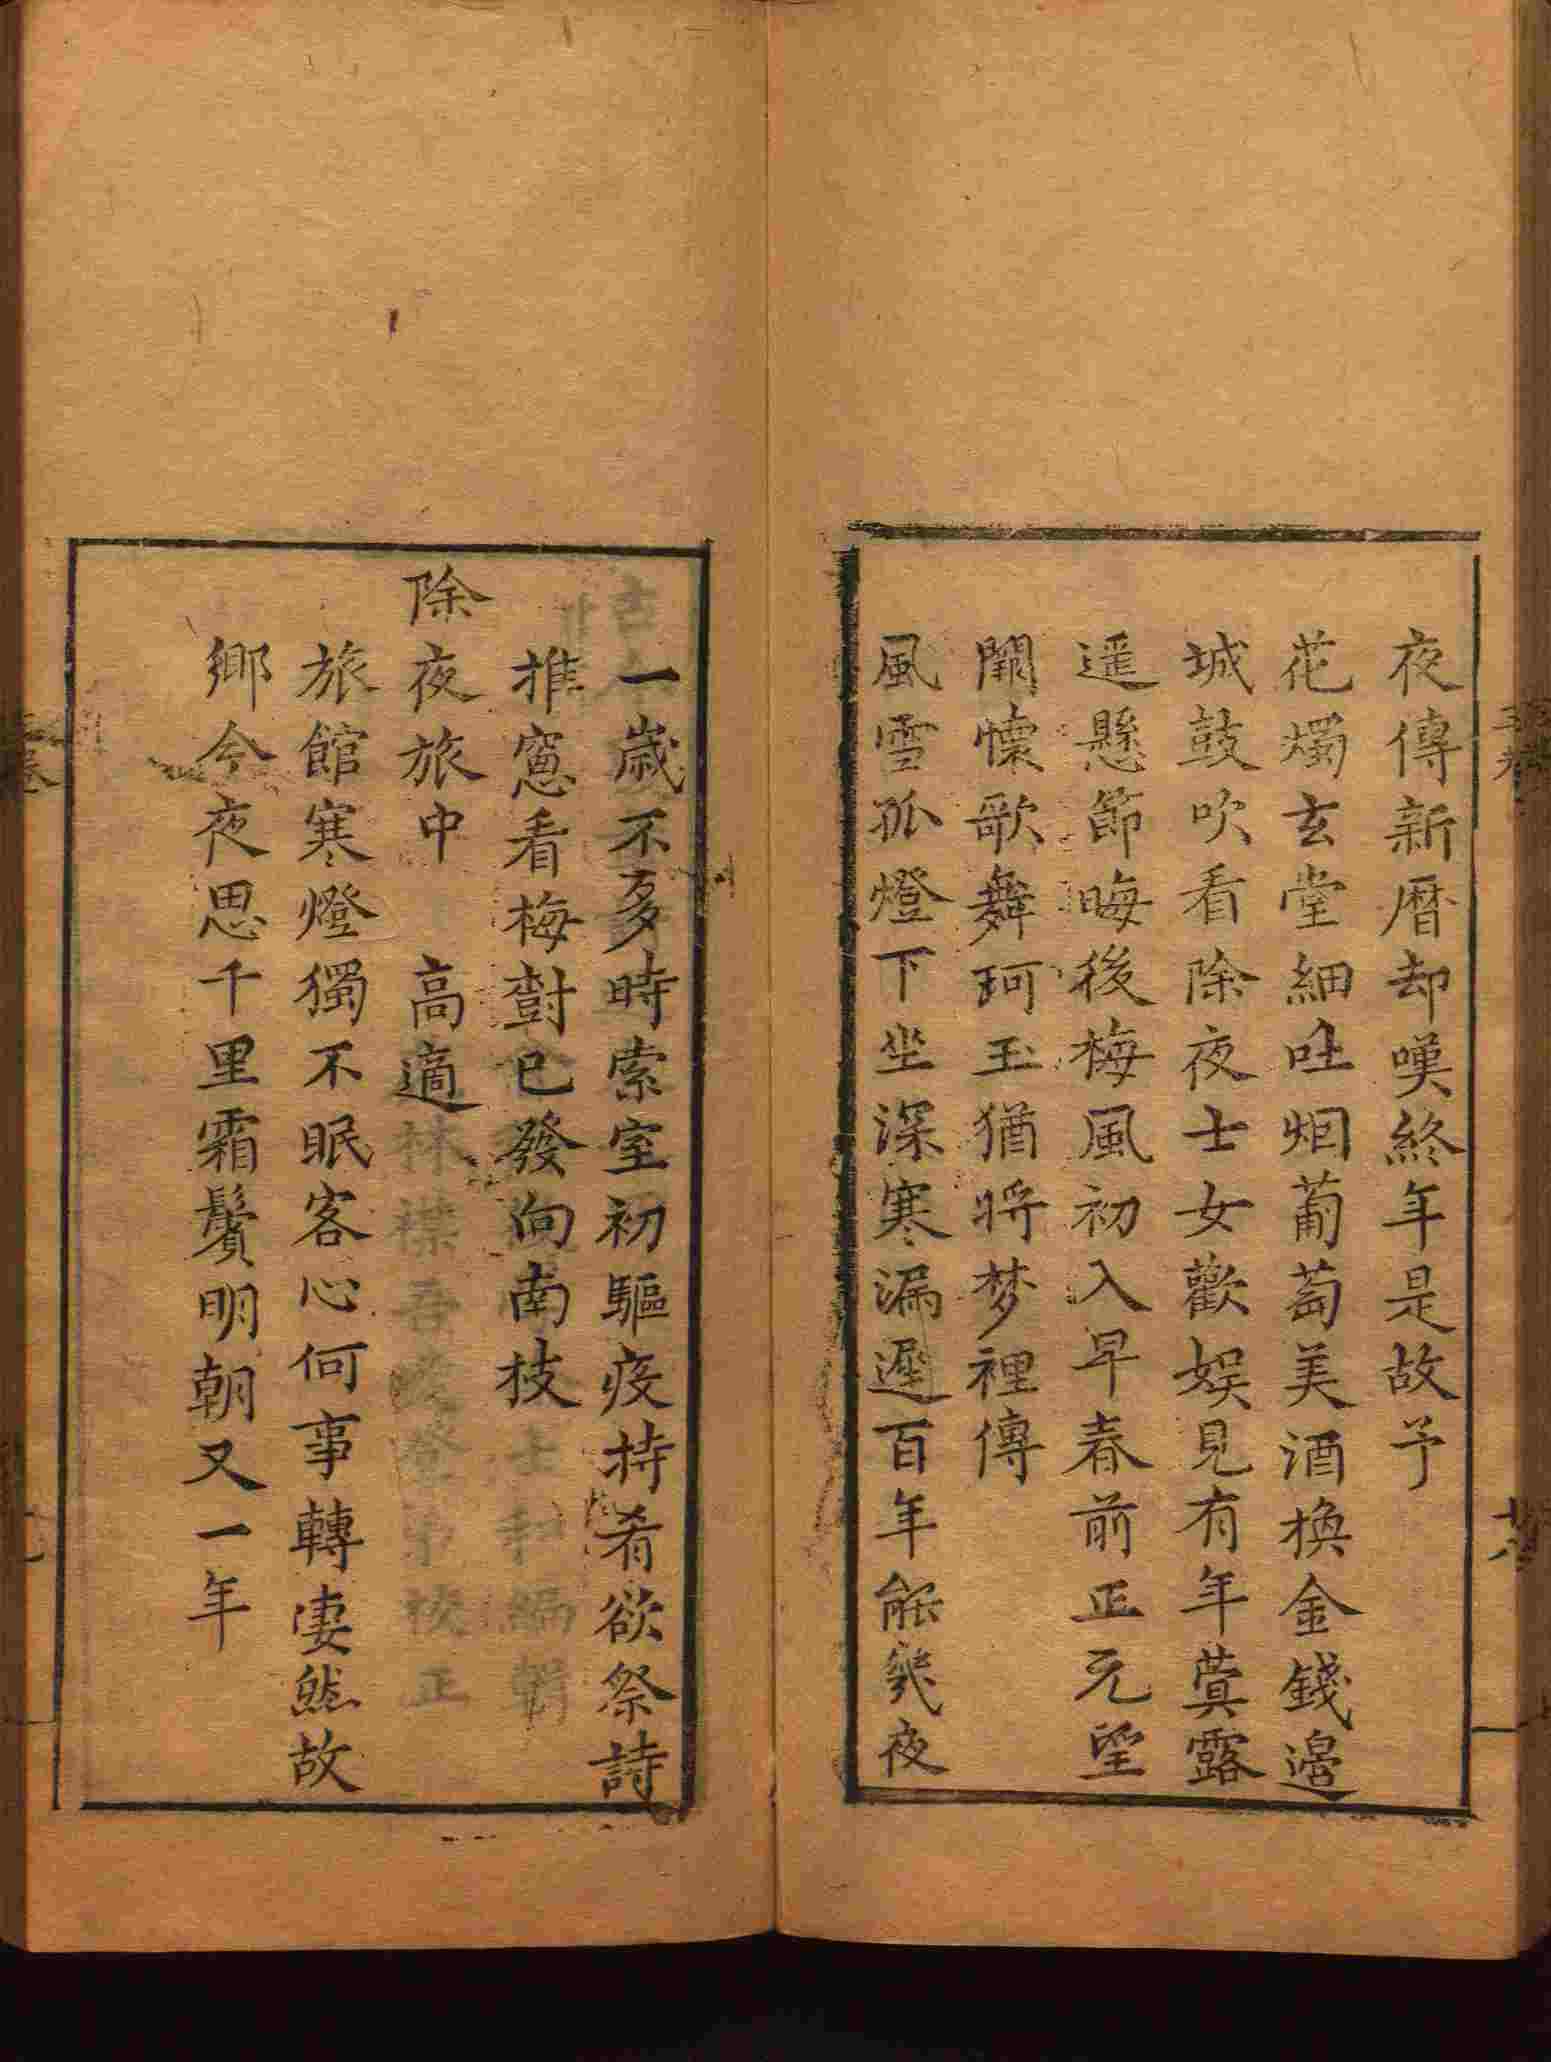 夜傳新曆却嘆終年是故予
花燭玄堂細吐烟葡萄美酒換金錢邊
城鼓吹看除夜士女歡娛見有年蓂露
遥懸節晦後梅風初入早春前正元望
闕懷歌舞珂玉猶将梦裡傳
風雪孤燈下坐深寒漏遲百年能幾夜
一歲不多時索室初驅疫持肴欲祭詩
推窻看梅樹已發向南枝
除夜旅中 高適
旅館寒燈獨不眠客心何事轉凄然故
鄉今夜思千里霜鬢明朝又一年